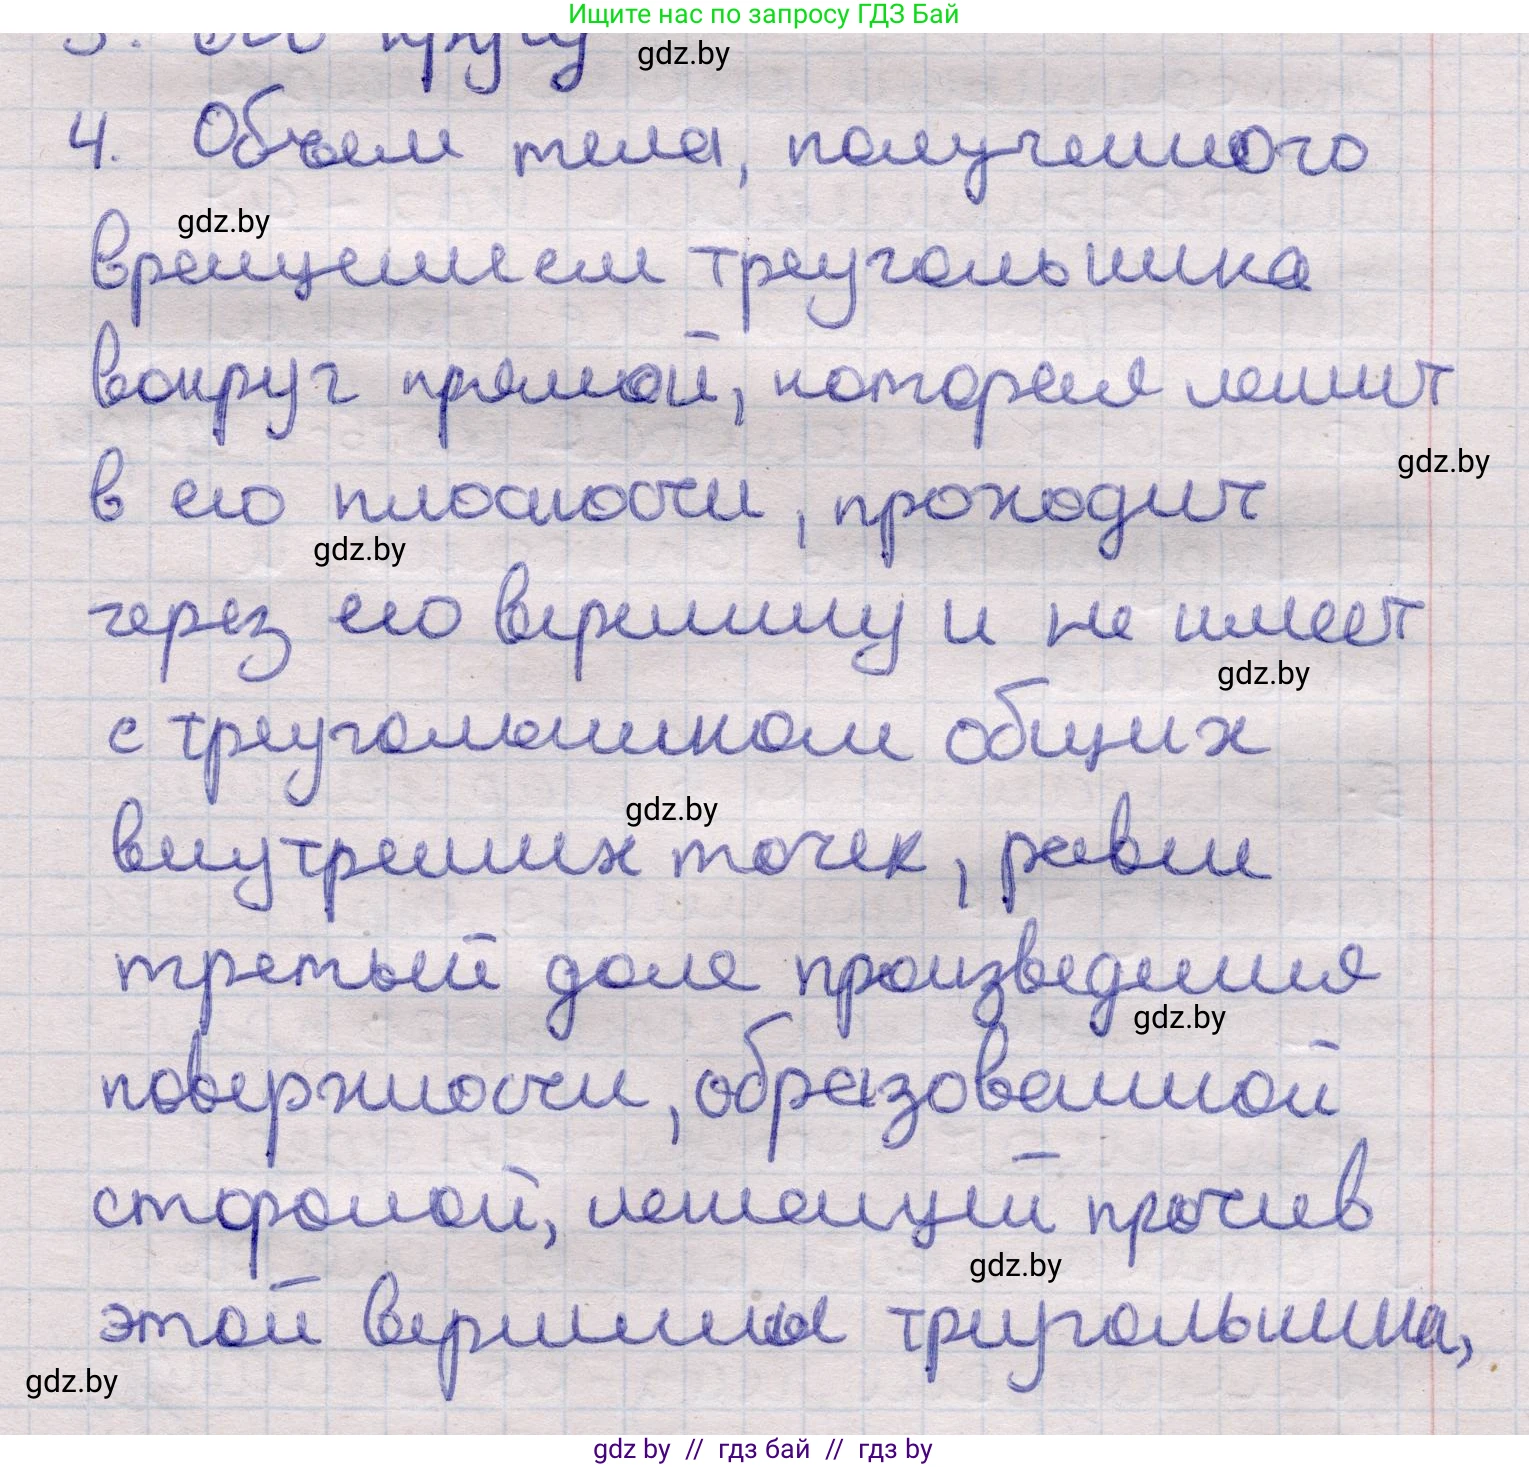 Ищите нас по запросу ГДЗ Бай
gdz.by
4. Объем тела, полученного
gdz.by
вращением треугольника
вокруг прямой, которая лежит
gdz.by
в его плоскости, проходит
gdz.by
через его вершину и не имеет
gdz.by
с треугольником общих
gdz.by
внутренних точек, равен
третьей доле произведения
gdz.by
поверхности, образованной
стороной, лежащей против
gdz.by
этой вершины треугольника,
gdz.by
gdz by // гдз бай // гдз by